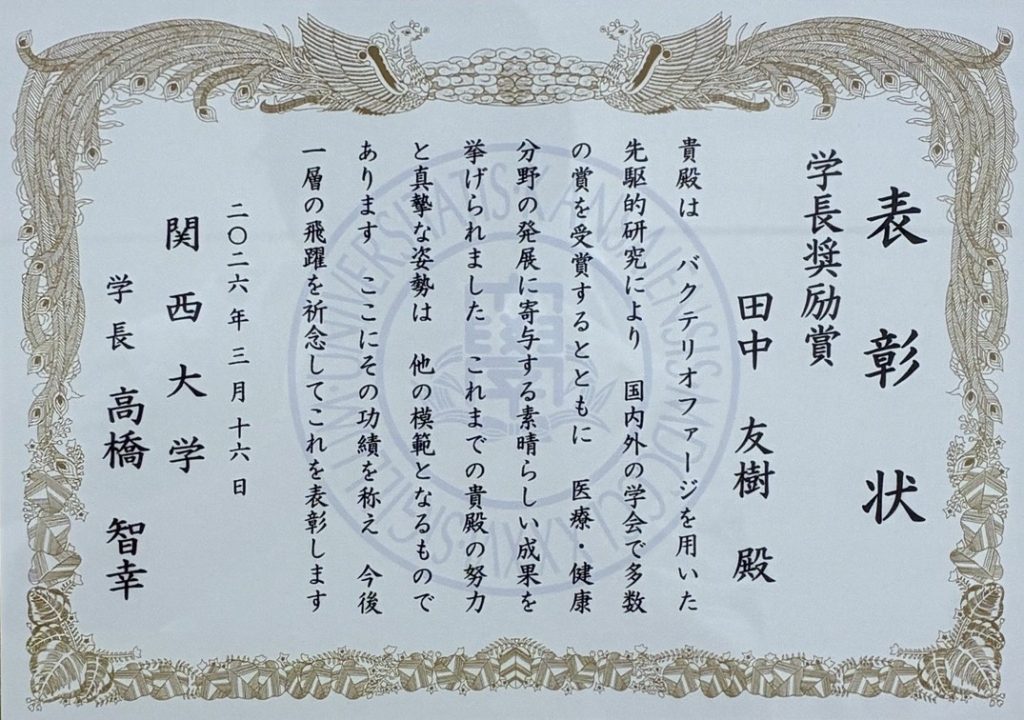 表彰状
学長奨励賞
田中 友樹 殿
貴殿は バクテリオファージを用いた
先駆的研究により 国内外の学会で多数
の賞を受賞するとともに 医療・健康
分野の発展に寄与する素晴らしい成果を
挙げられました これまでの貴殿の努力
と真摯な姿勢は 他の模範となるもので
あります ここにその功績を称え 今後
一層の飛躍を祈念してこれを表彰します
二〇二六年三月十六日
関西大学
学長 高橋 智幸